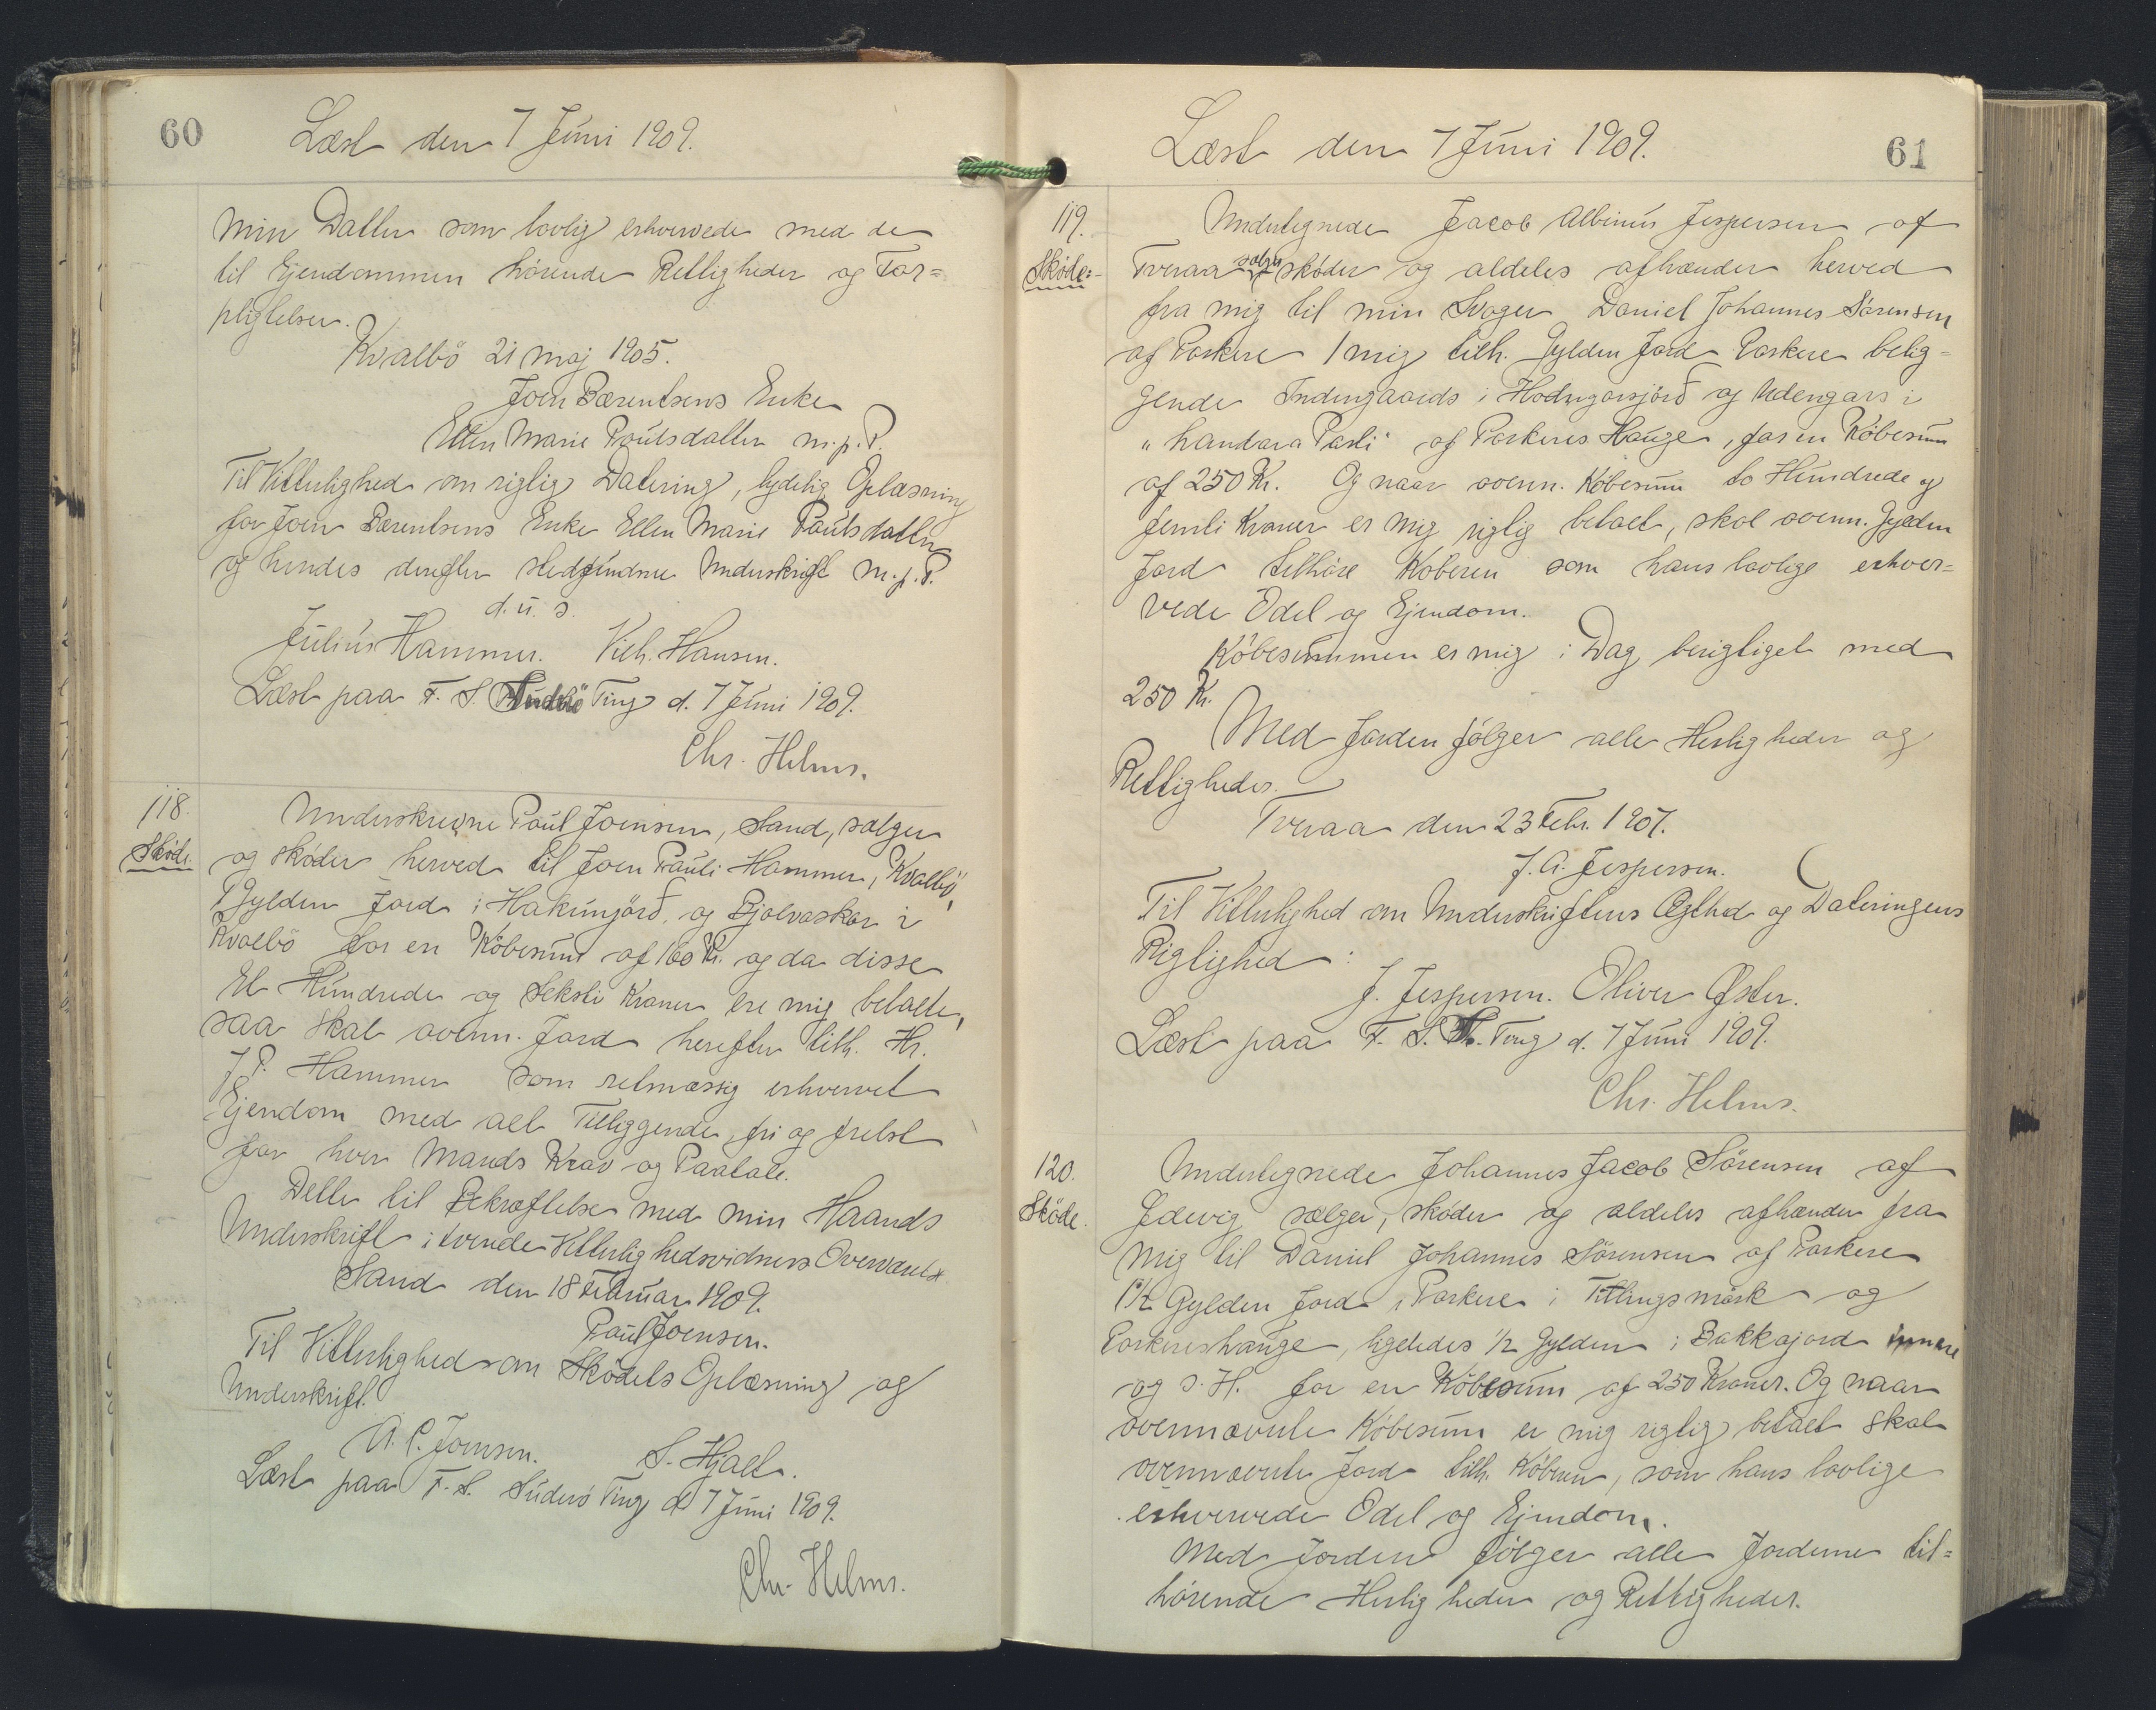 60
Læst den 7 Juni 1909.
min Datter som lovlig erhvervede med de
til Ejendommen hörende Rettigheder og For=
pligtelser.
Kvalbö 21 Maj 1905.
Joen Bærentsens Enke
Ellen Marie Poulsdatter m.p.P.
Til Vitterlighed om rigtig Datering, tydelig Oplæsning
for Joen Bærentsens Enke Ellen Marie Poulsdatter
og hendes derefter stedfundne Underskrift m.p.P.
d.u.s.
Julius Hammer. Vilh. Hansen.
Læst paa F. S. Suderö Ting d. 7 Juni 1909.
Chr. Helms.
118.
Skøde.
Underskrevne Poul Joensen, Sand, sælger
og skøder herved til Joen Pauli Hammer, Kvalbö,
1 Gylden Jord i Hakunjörð, og Bjolvaskor i
Kvalbö for en Købesum af 160 Kr. og da disse
Et Hundrede og Seksti Kroner ere mig betalte,
saa skal ovenn. Jord herefter tilh. Hr.
J. P. Hammer som retmæssig erhvervet
Ejendom med alt Tilliggende, fri og frelst
for hver Mands Krav og Paatale.
Dette til Bekræftelse med min Haands
Underskrift i tvende Vitterlighedsvidners Overværelse
Sand den 18 Februar 1909.
Poul Joensen.
Til Vitterlighed om Skødets Oplæsning og
Underskrift.
A. C. Joensen. S. Hjalt.
Læst paa F. S. Suderö Ting d. 7 Juni 1909.
Chr. Helms.
Læst den 7 Juni 1909.
61
119.
Skøde:
Undertegnede Jacob Albinus Jespersen af
Tveraa sælger skøder og aldeles afhænder herved
fra mig til min Svoger Daniel Johannes Sörensen
af Porkere 1 mig tilh. Gylden Jord Porkere belig=
gende Indengaards i Hodngarsjörð og Udengars i
"handara Parti" af Porkeres Hauge, for en Købesum
af 250 Kr. Og naar ovenn. Købesum to Hundrede og
femti Kroner er mig rigtig betalt, skal ovenn. Gylden
Jord tilhöre Köberen som hans lovlige erhver=
vede Odel og Ejendom.
Købesummen er mig i Dag berigtiget med
250 Kr.
Med Jorden fölger alle Herligheder og
Rettigheder.
Tveraa den 23 Febr. 1907.
J. A. Jespersen.
Til Vitterlighed om Underskriftens Ægthed og Dateringens
Rigtighed:
J. Jespersen. Oliver Øster.
Læst paa F. S. Ting d. 7 Juni 1909.
Chr. Helms.
120.
Skøde.
Undertegnede Johannes Jacob Sörensen af
Jdevig sælger, skøder og aldeles afhænder fra
mig til Daniel Johannes Sörensen af Porkere
1 1/2 Gylden Jord i Porkere i Titlingsmörk og
Porkereshauge, ligeledes 1/2 Gylden i Bakkajord innare
og s. H. for en Købesum af 250 Kroner. Og naar
ovennævnte Købesum er mig rigtig betalt skal
ovennævnte Jord tilh. Köberen, som hans lovlige
erhvervede Odel og Ejendom.
Med Jorden fölger alle Jorderne til=
hörende Herligheder og Rettigheder.